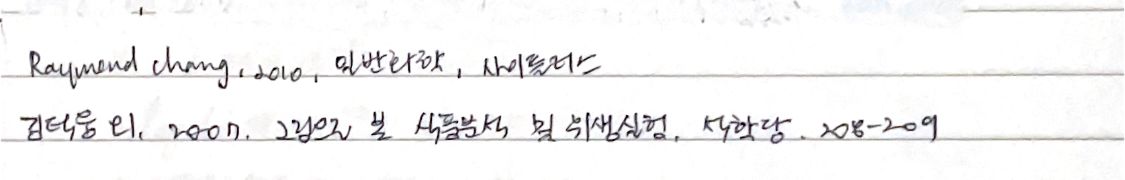 Raymond chang, 2010, 일반화학, 사이플러스
김덕웅 외, 2007. 그림으로 본 식품분석 및 위생실험, 석학당. 208-209